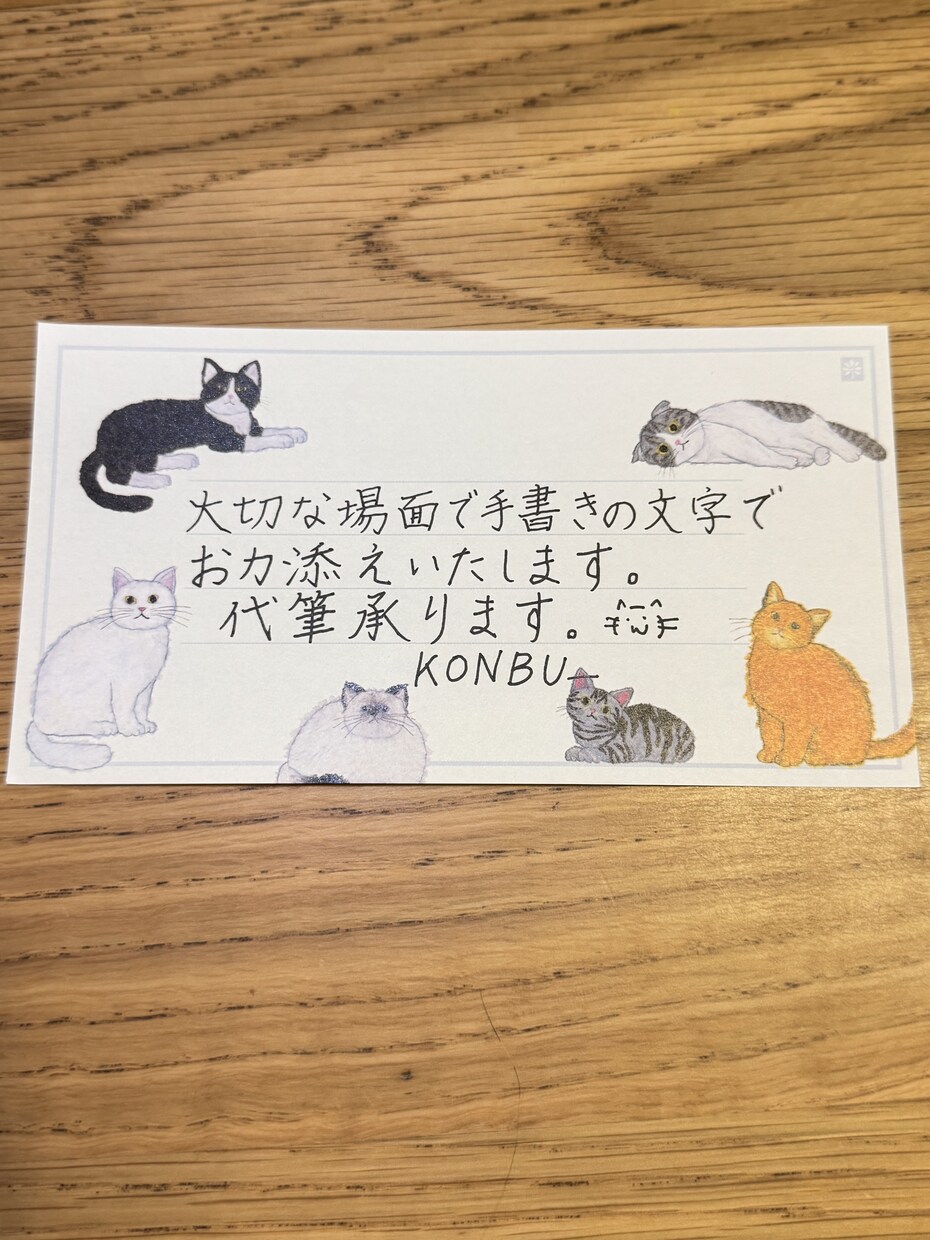 大切な場面で手書きの文字で
お力添えいたします。
代筆承ります。
KONBU